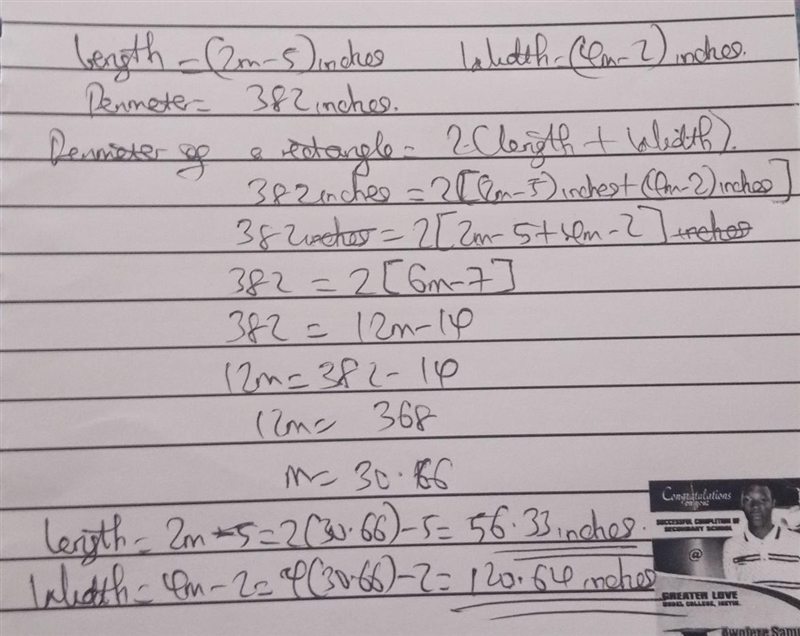 Length = (2m-5) inches Width = (4m-2) inches.
Perimeter = 382 inches.
Perimeter of a rectangle = 2(length + Width).
382 inches = 2[(2m-5) inches + (4m-2) inches]
382 inches = 2[2m-5+4m-2] inches
382 = 2[6m-7]
382 = 12m-14
12m = 382-14
12m = 368
m = 30.66
Length = 2m-5 = 2(30.66)-5 = 56.33 inches.
Width = 4m-2 = 4(30.66)-2 = 120.64 inches
Congratulations
on your
SUCCESSFUL COMPLETION OF
SECONDARY SCHOOL
@
GREATER LOVE
MODEL COLLEGE,